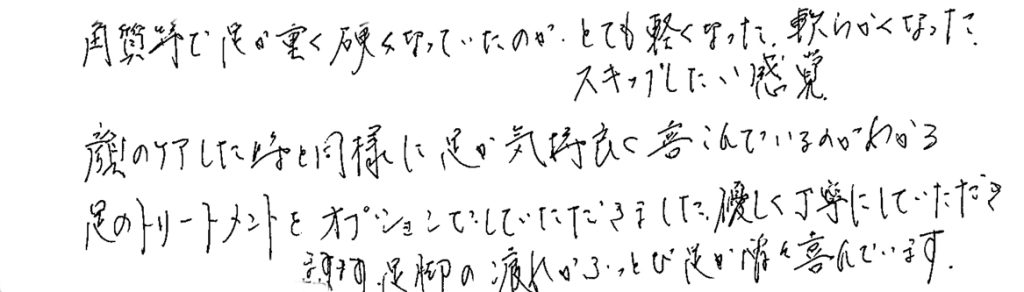 角質等で足が重く硬くなっていたのが、とても軽くなった、軟らかくなった、
スキップしたい感覚
顔のケアした時と同様に足が気持良く喜こんでいるのがわかる
足のトリートメントをオプションでしていただきました。優しく丁寧にしていただき
ます 足脚の疲れがふっとび足が 喜んでいます。